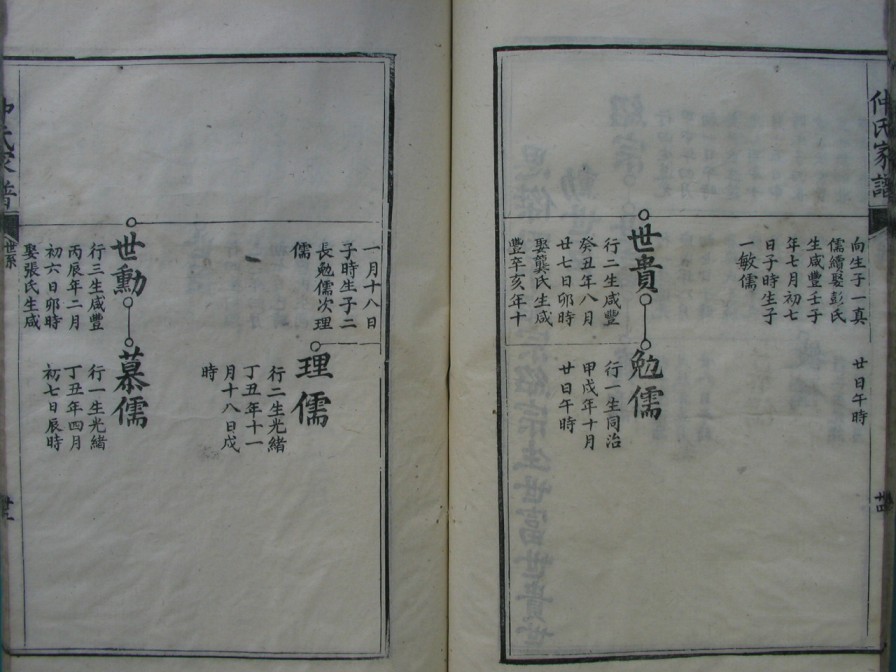 仲氏家譜
向生子一真
儒繼娶彭氏
生咸豐壬子
年七月初七
日子時生子
一敏儒
廿日午時
世貴
行二生咸豐
癸丑年八月
廿七日卯時
娶龔氏生咸
豐辛亥年十
勉儒
行一生同治
甲戌年十月
廿日午時
一月十八日
子時生子二
長勉儒次理
儒
理儒
行二生光緒
丁丑年十一
月十八日戌
時
世勳
行三生咸豐
丙辰年二月
初六日卯時
娶張氏生咸
慕儒
行一生光緒
丁丑年四月
初七日辰時
氏家譜
世系